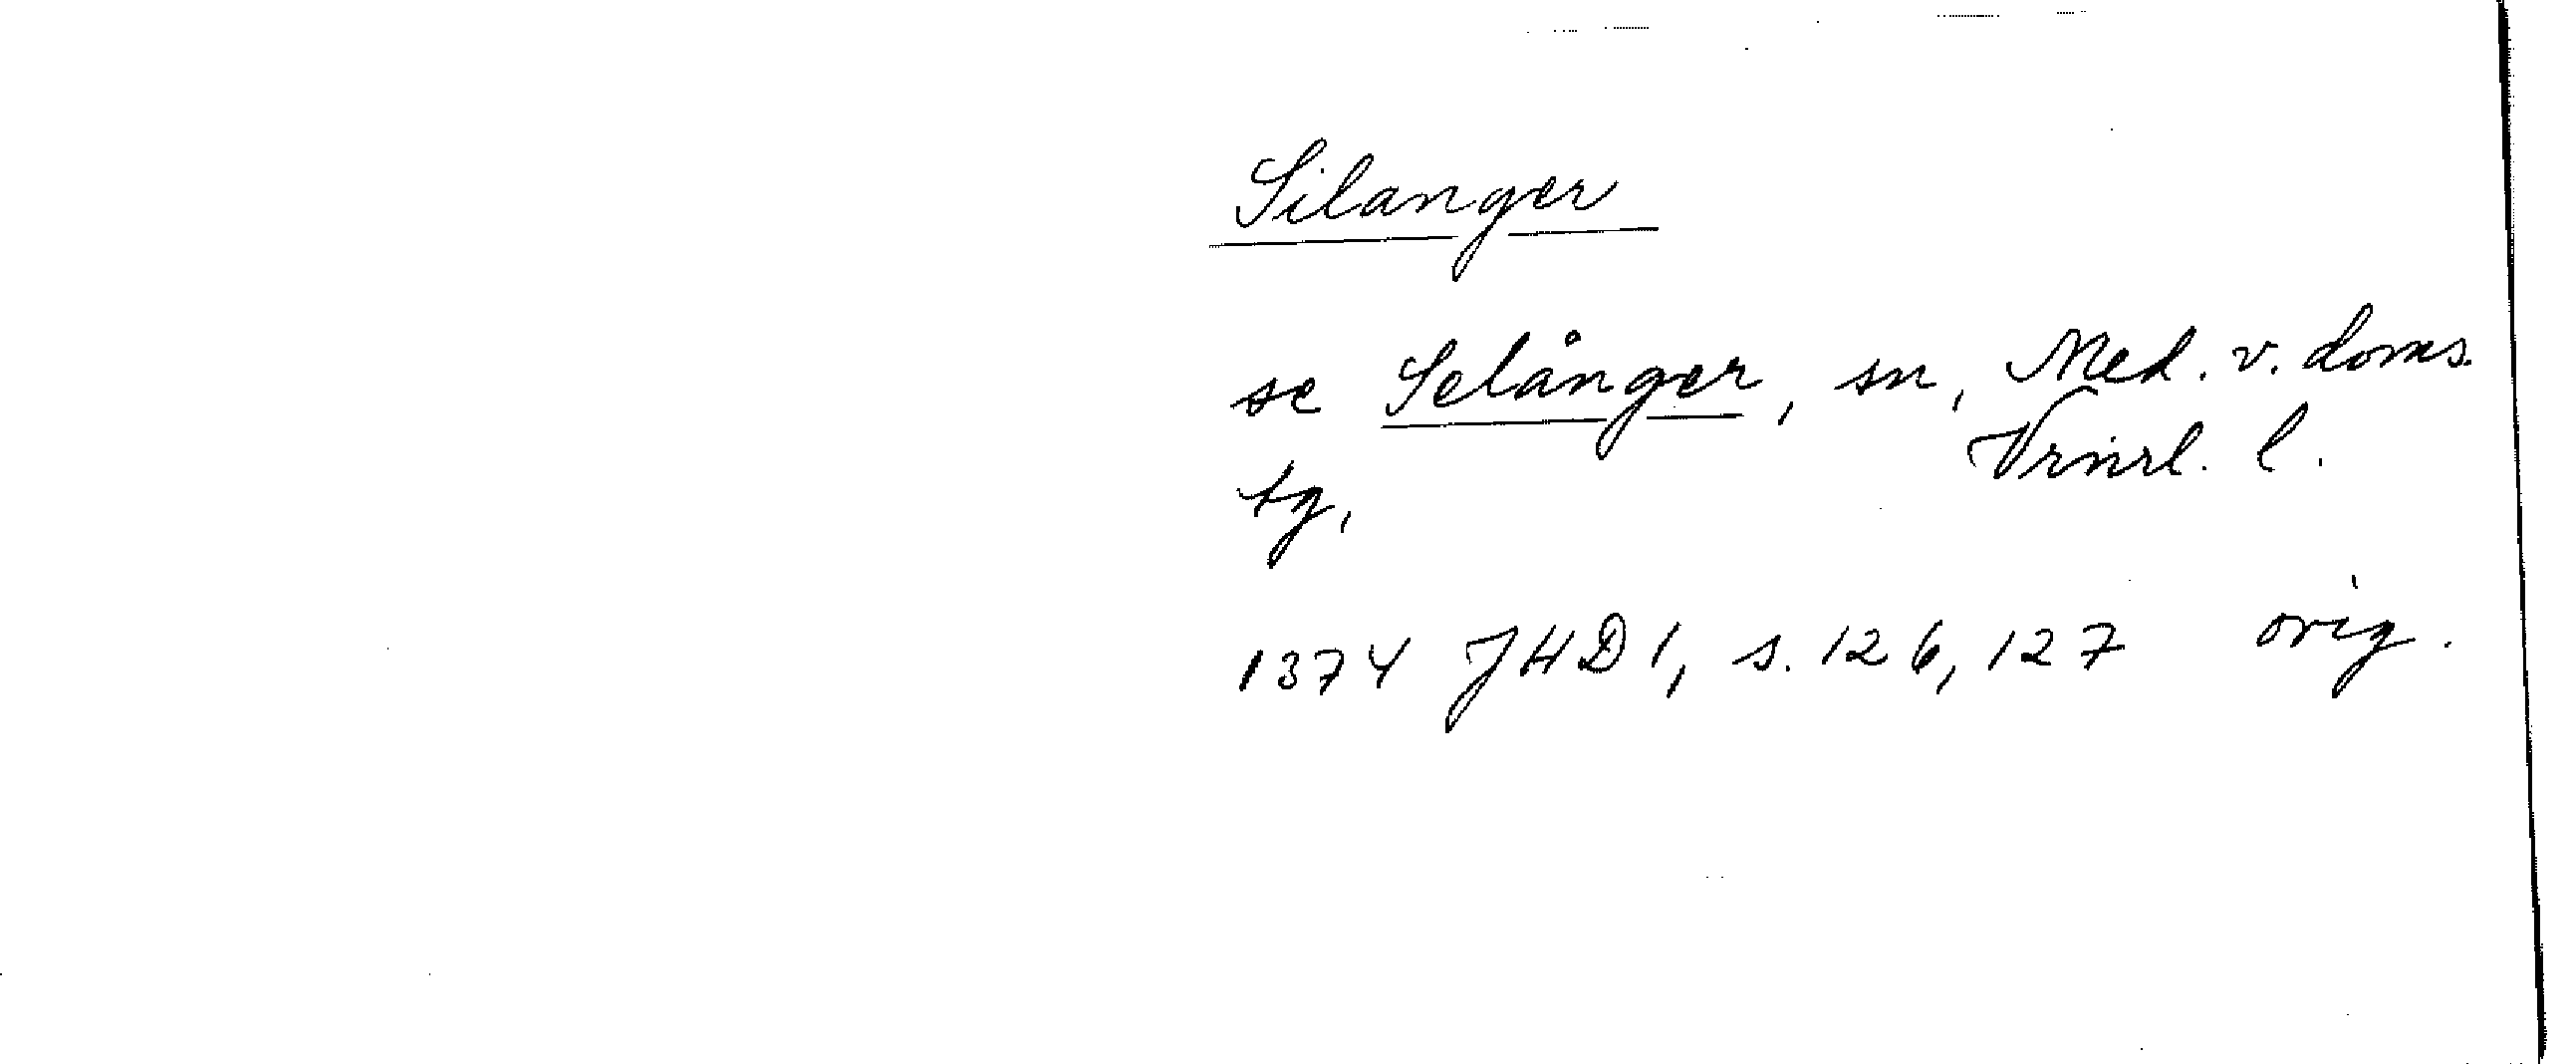 Silanger
se Selånger, sn, Med. v. doms.
tg, Vrnrl. l.
1374 JHD 1, s. 126, 127 orig.